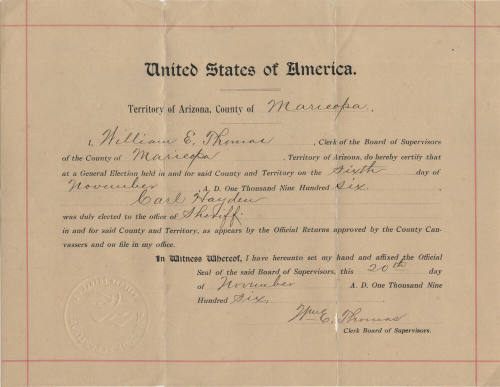 United States of America.
Territory of Arizona, County of Maricopa.
I, William E. Thomas, Clerk of the Board of Supervisors
of the County of Maricopa, Territory of Arizona, do hereby certify that
at a General Election held in and for said County and Territory on the Sixth day of
November, A. D. One Thousand Nine Hundred Six.
Carl Hayden
was duly elected to the office of Sheriff
in and for said County and Territory, as appears by the Official Returns approved by the County Can-
vassers and on file in my office.
In Witness Whereof, I have hereunto set my hand and affixed the Official
Seal of the said Board of Supervisors, this 20th day
of November A. D. One Thousand Nine
Hundred Six.
Wm E. Thomas
Clerk Board of Supervisors.